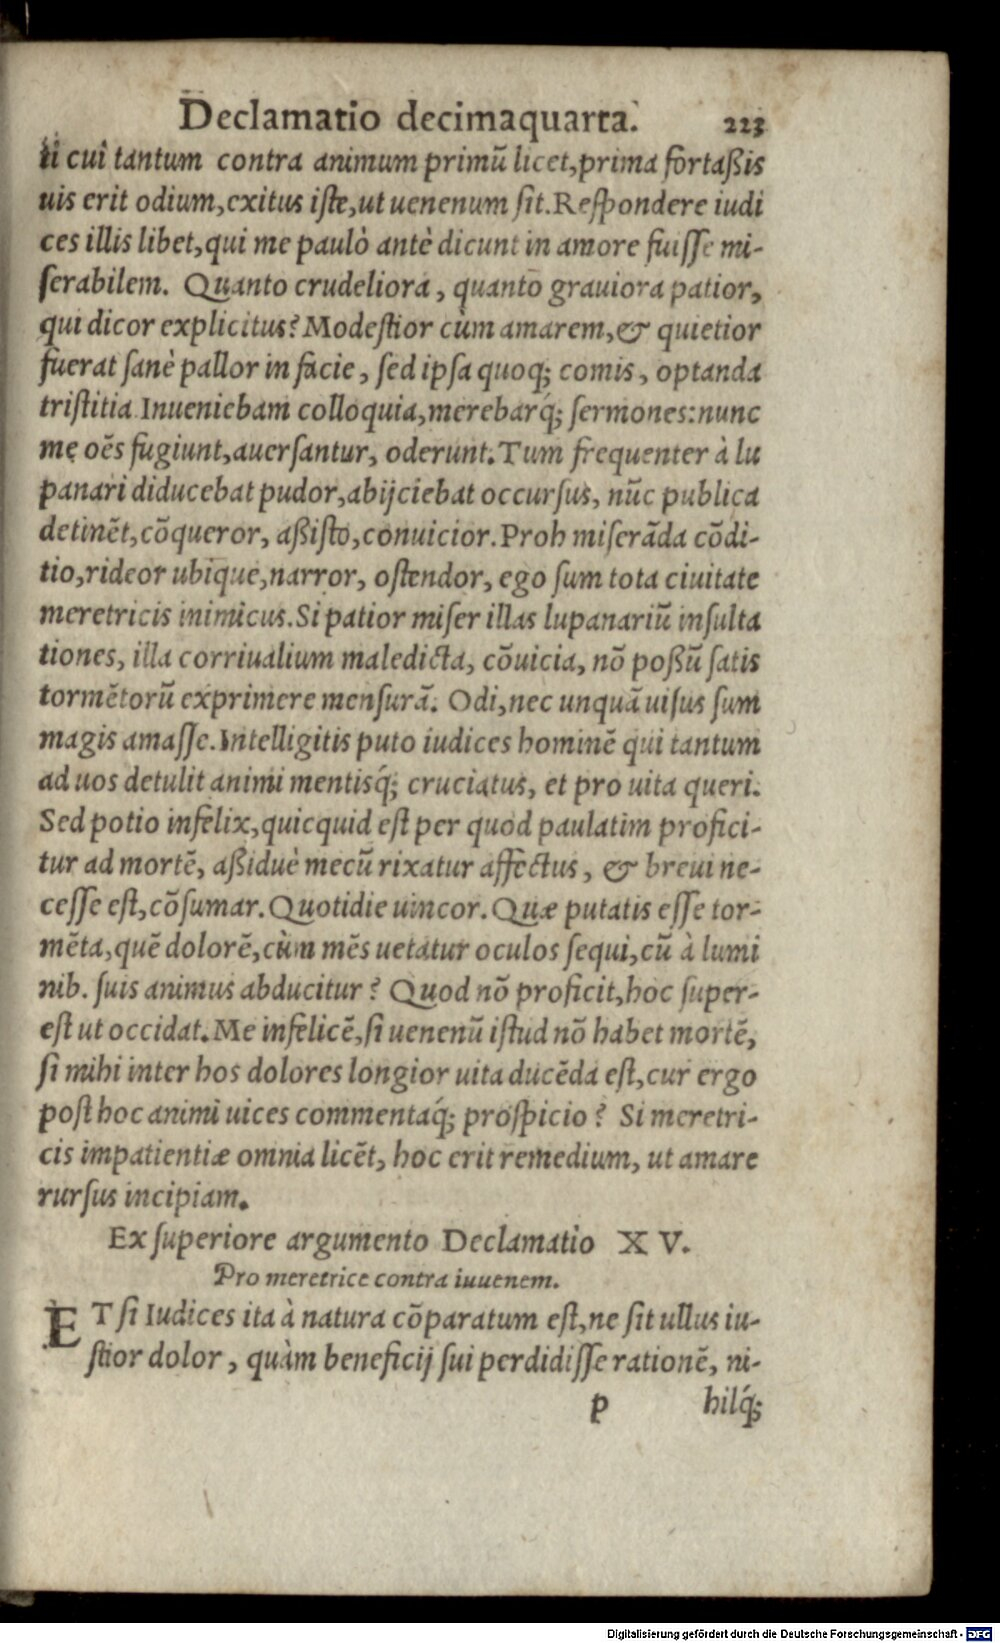 Declamatio decimaquarta. 223
ti cui tantum contra animum primũ licet, prima fortaßis
uis erit odium, exitus iste, ut uenenum sit. Respondere iudi
ces illis libet, qui me paulò antè dicunt in amore fuisse mi-
serabilem. Quanto crudeliora, quanto grauiora patior,
qui dicor explicitus? Modestior cùm amarem, & quietior
fuerat sanè pallor in facie, sed ipsa quoq; comis, optanda
tristitia. Inueniebam colloquia, merebarq́; sermones: nunc
me oẽs fugiunt, auersantur, oderunt. Tum frequenter à lu
panari diducebat pudor, abijciebat occursus, nũc publica
detinẽt, cõqueror, aßisto, conuicior. Proh miserãda cõdi-
tio, rideor ubique, narror, ostendor, ego sum tota ciuitate
meretricis inimicus. Si patior miser illas lupanariũ insulta
tiones, illa corriualium maledicta, cõuicia, nõ poßũ satis
tormẽtorũ exprimere mensurã. Odi, nec unquã uisus sum
magis amasse. Intelligitis puto iudices hominẽ qui tantum
ad uos detulit animi mentisq́; cruciatus, et pro uita queri.
Sed potio infelix, quicquid est per quod paulatim profici-
tur ad mortẽ, aßiduè mecũ rixatur affectus, & breui ne-
cesse est, cõsumar. Quotidie uincor. Quæ putatis esse tor-
mẽta, quẽ dolorẽ, cùm mẽs uetatur oculos sequi, cũ à lumi
nib. suis animus abducitur? Quod nõ proficit, hoc super-
est ut occidat. Me infelicẽ, si uenenũ istud nõ habet mortẽ,
si mihi inter hos dolores longior uita ducẽda est, cur ergo
post hoc animi uices commentaq́; prospicio? Si meretri-
cis impatientiæ omnia licẽt, hoc erit remedium, ut amare
rursus incipiam.
Ex superiore argumento Declamatio XV.
Pro meretrice contra iuuenem.
ET si Iudices ita à natura cõparatum est, ne sit ullus iu-
stior dolor, quàm beneficij sui perdidisse rationẽ, ni-
p hilq́;
Digitalisierung gefördert durch die Deutsche Forschungsgemeinschaft - DFG